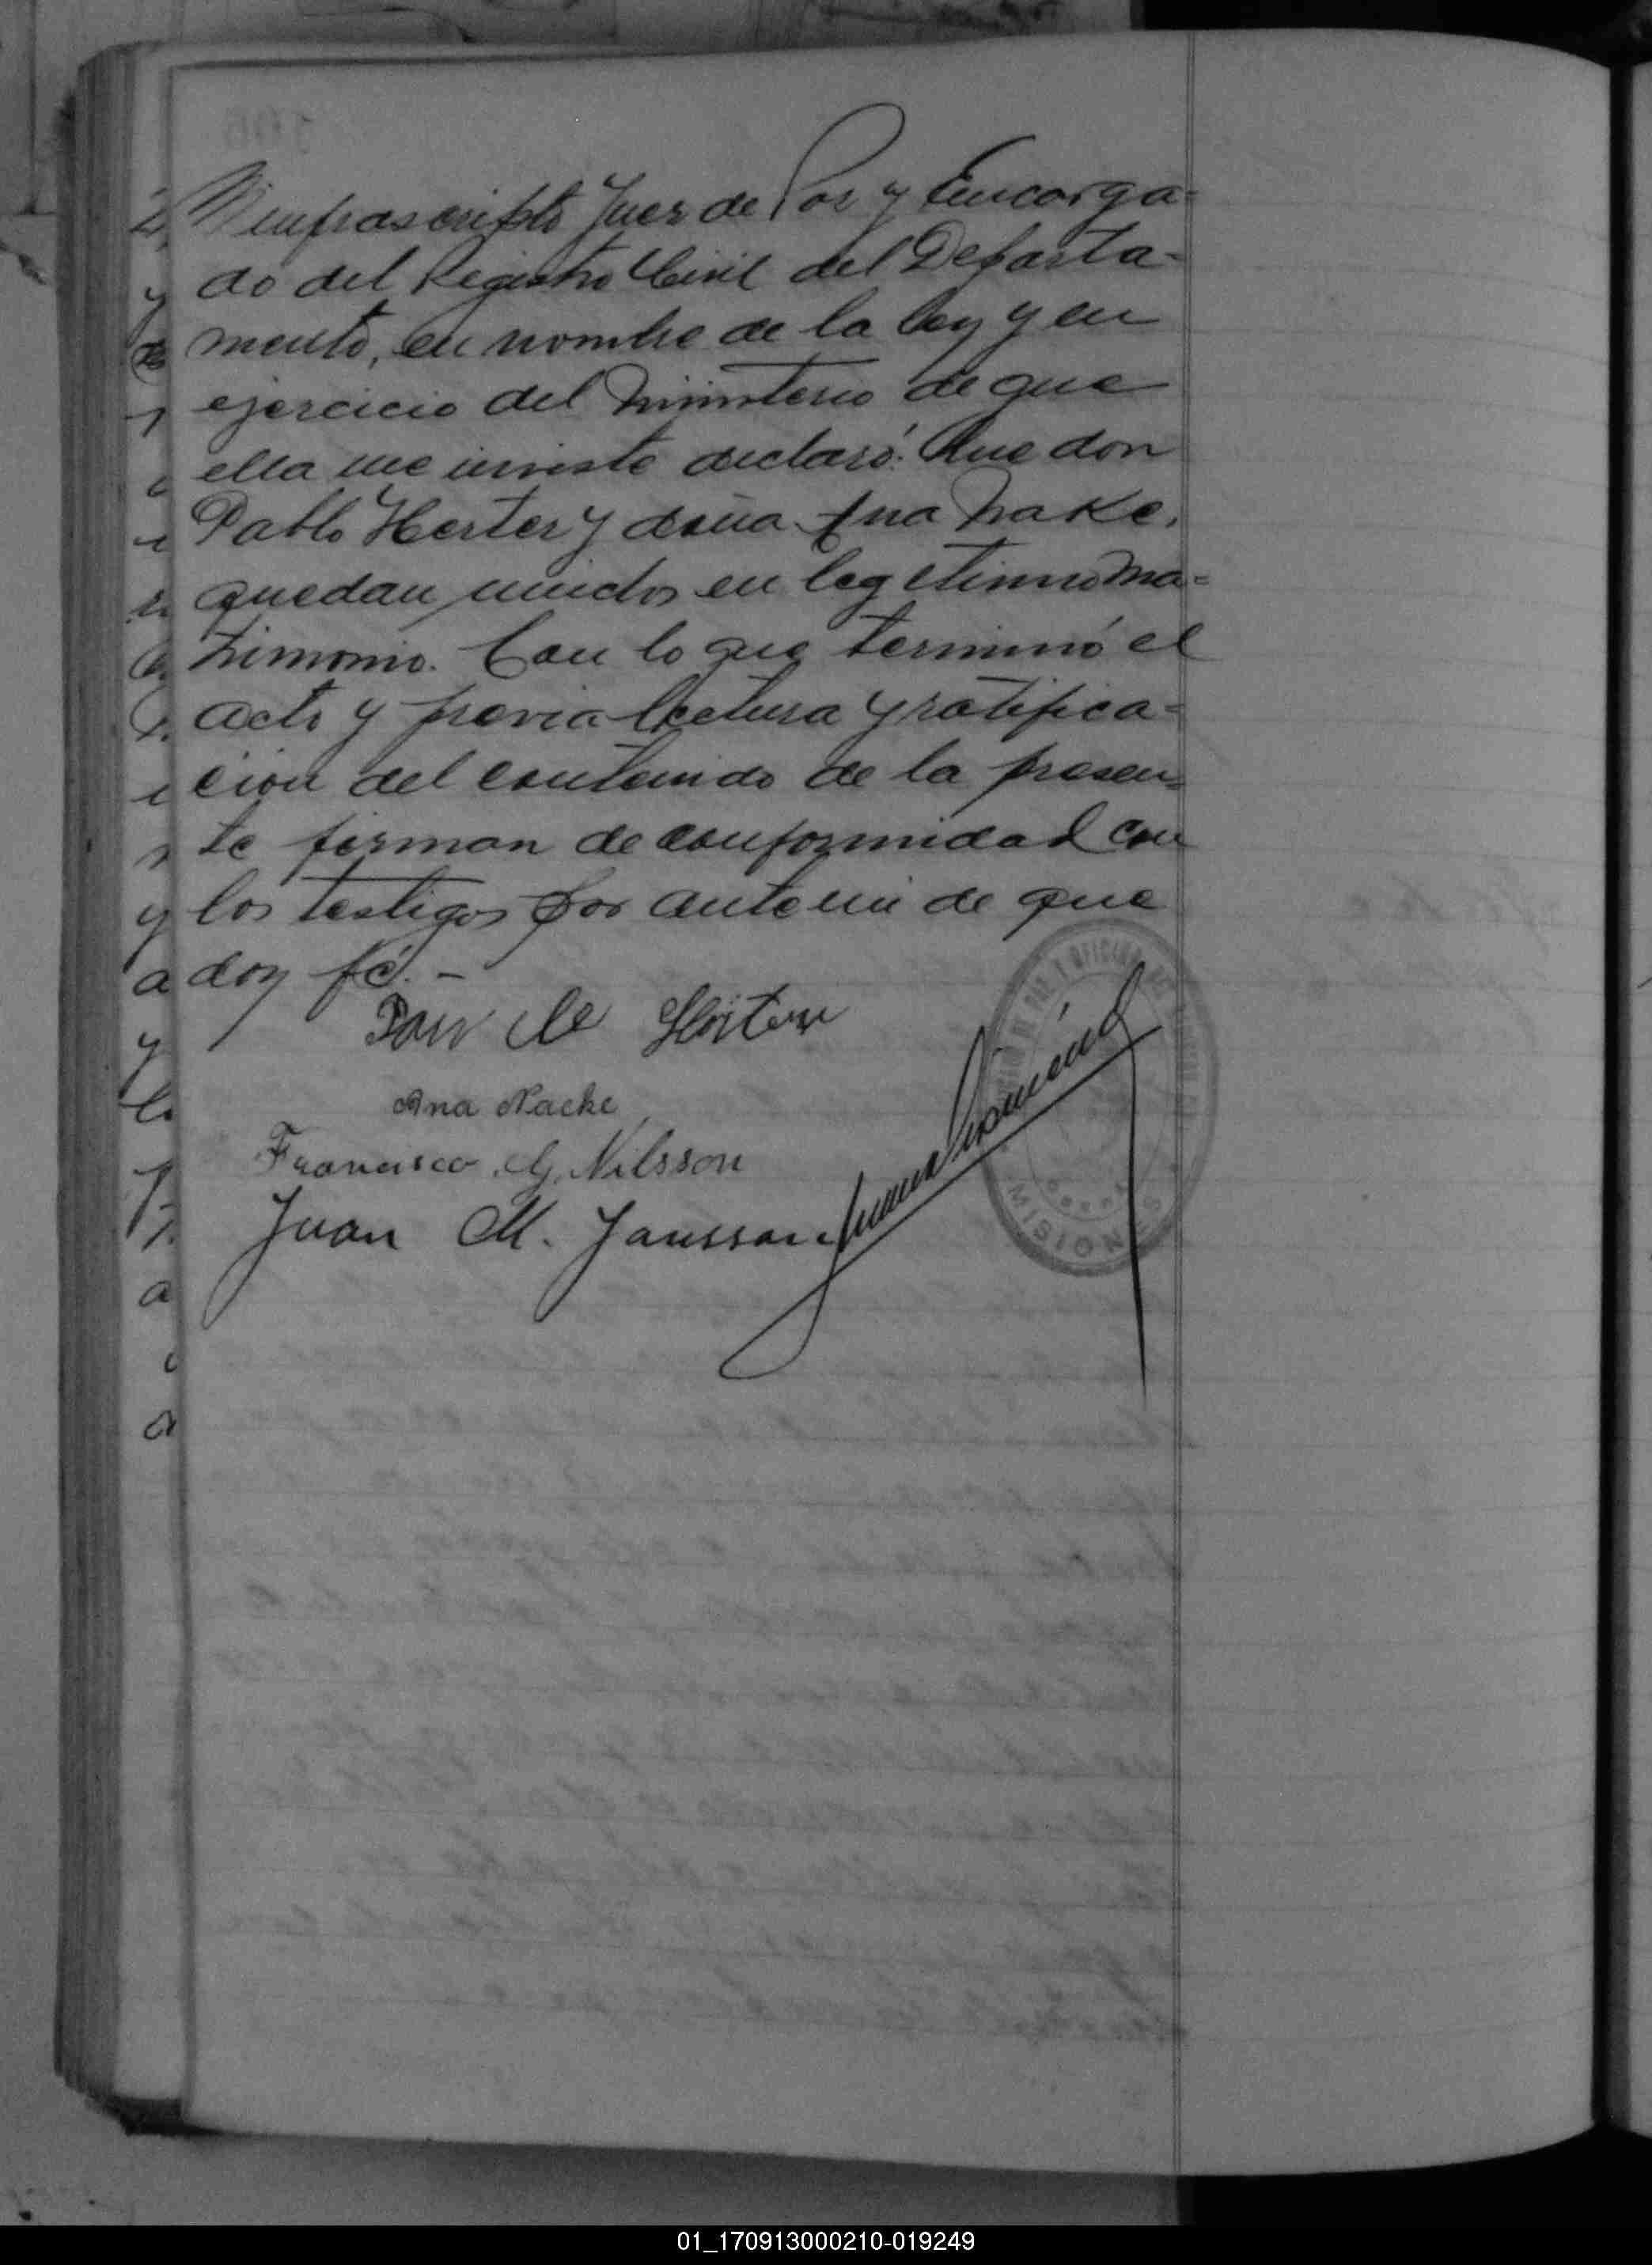 infrascripto Juez de Paz y Encarga-
do del Registro Civil del Departa-
mento, en nombre de la ley y en
ejercicio del Ministerio de que
ella me inviste declaró: Que don
Pablo Herter y doña Ana Nake,
quedan unidos en legitimo ma=
trimonio. Con lo que terminó el
acto y previa lectura y ratifica=
cion del contenido de la presen=
te firman de conformidad con
los testigos por ante mi de que
doy fé. –
Ana Nacke
Francisco G. Nilsson
Juan M. Jansson
MISIONES
01_170913000210-019249